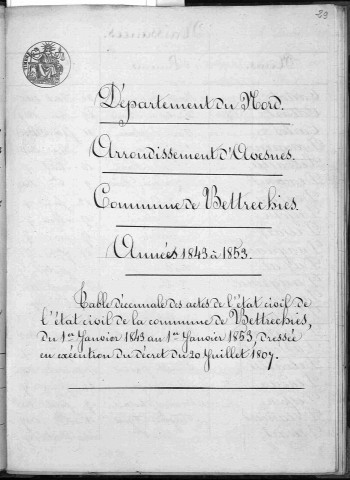 29
Département du Nord.
Arrondissement d'Avesnes.
Commune de Bettrechies.
Années 1843 à 1853.
Table décennale des actes de l'état civil de
l'état civil de la commune de Bettrechies,
du 1er Janvier 1843 au 1er Janvier 1853, dressée
en exécution du décret du 20 Juillet 1807.